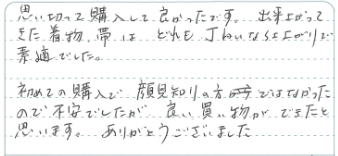 思い切って購入して良かったです。 出来上がって
きた着物、帯は どれも 丁ねいな仕上がりで
素適でした。
初めての購入で 顔見知りの方 ではなかった
ので不安でしたが 良い買い物が できたと
思います。 ありがとうございました